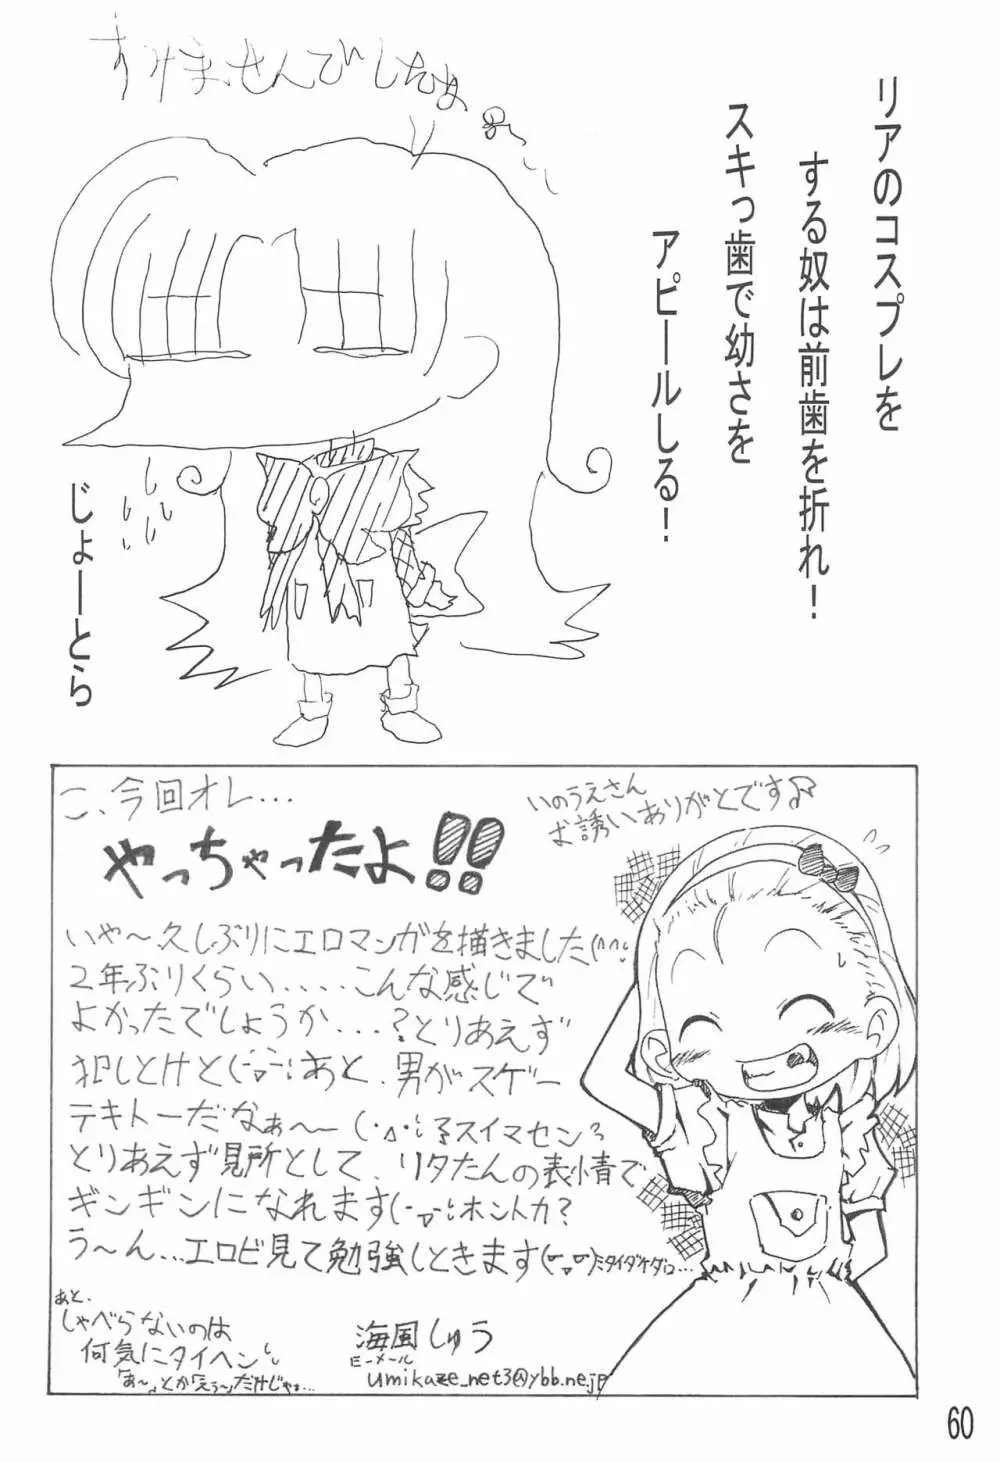 すみませんでしたよ
リアのコスプレを
する奴は前歯を折れ!
スキっ歯で幼さを
アピールしる!
じょーとら
こ、今回オレ…
やっちゃったよ!!
いのうえさん
お誘いありがとです♪
いや〜久しぶりにエロマンガを描きました(^^;
2年ぶりくらい.....こんな感じで
よかったでしょうか...?とりあえず
犯しとけと(-▽-;あと、男がスゲー
テキトーだなぁ〜〜(・△・;ミスイマセン
とりあえず見所として、リタたんの表情で
ギンギンになれます(-▽-;ホントカ?
う〜ん...エロビ見て勉強しときます
あと、
しゃべらないのは
何気にタイヘン
「あ〜」とか「えう〜」だけじゃぁ…
海風しゅう
Eーメール
umikaze_net3@ybb.ne.jp
60